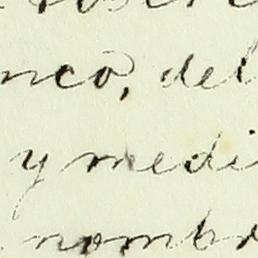 nco, del
y medi
nombr